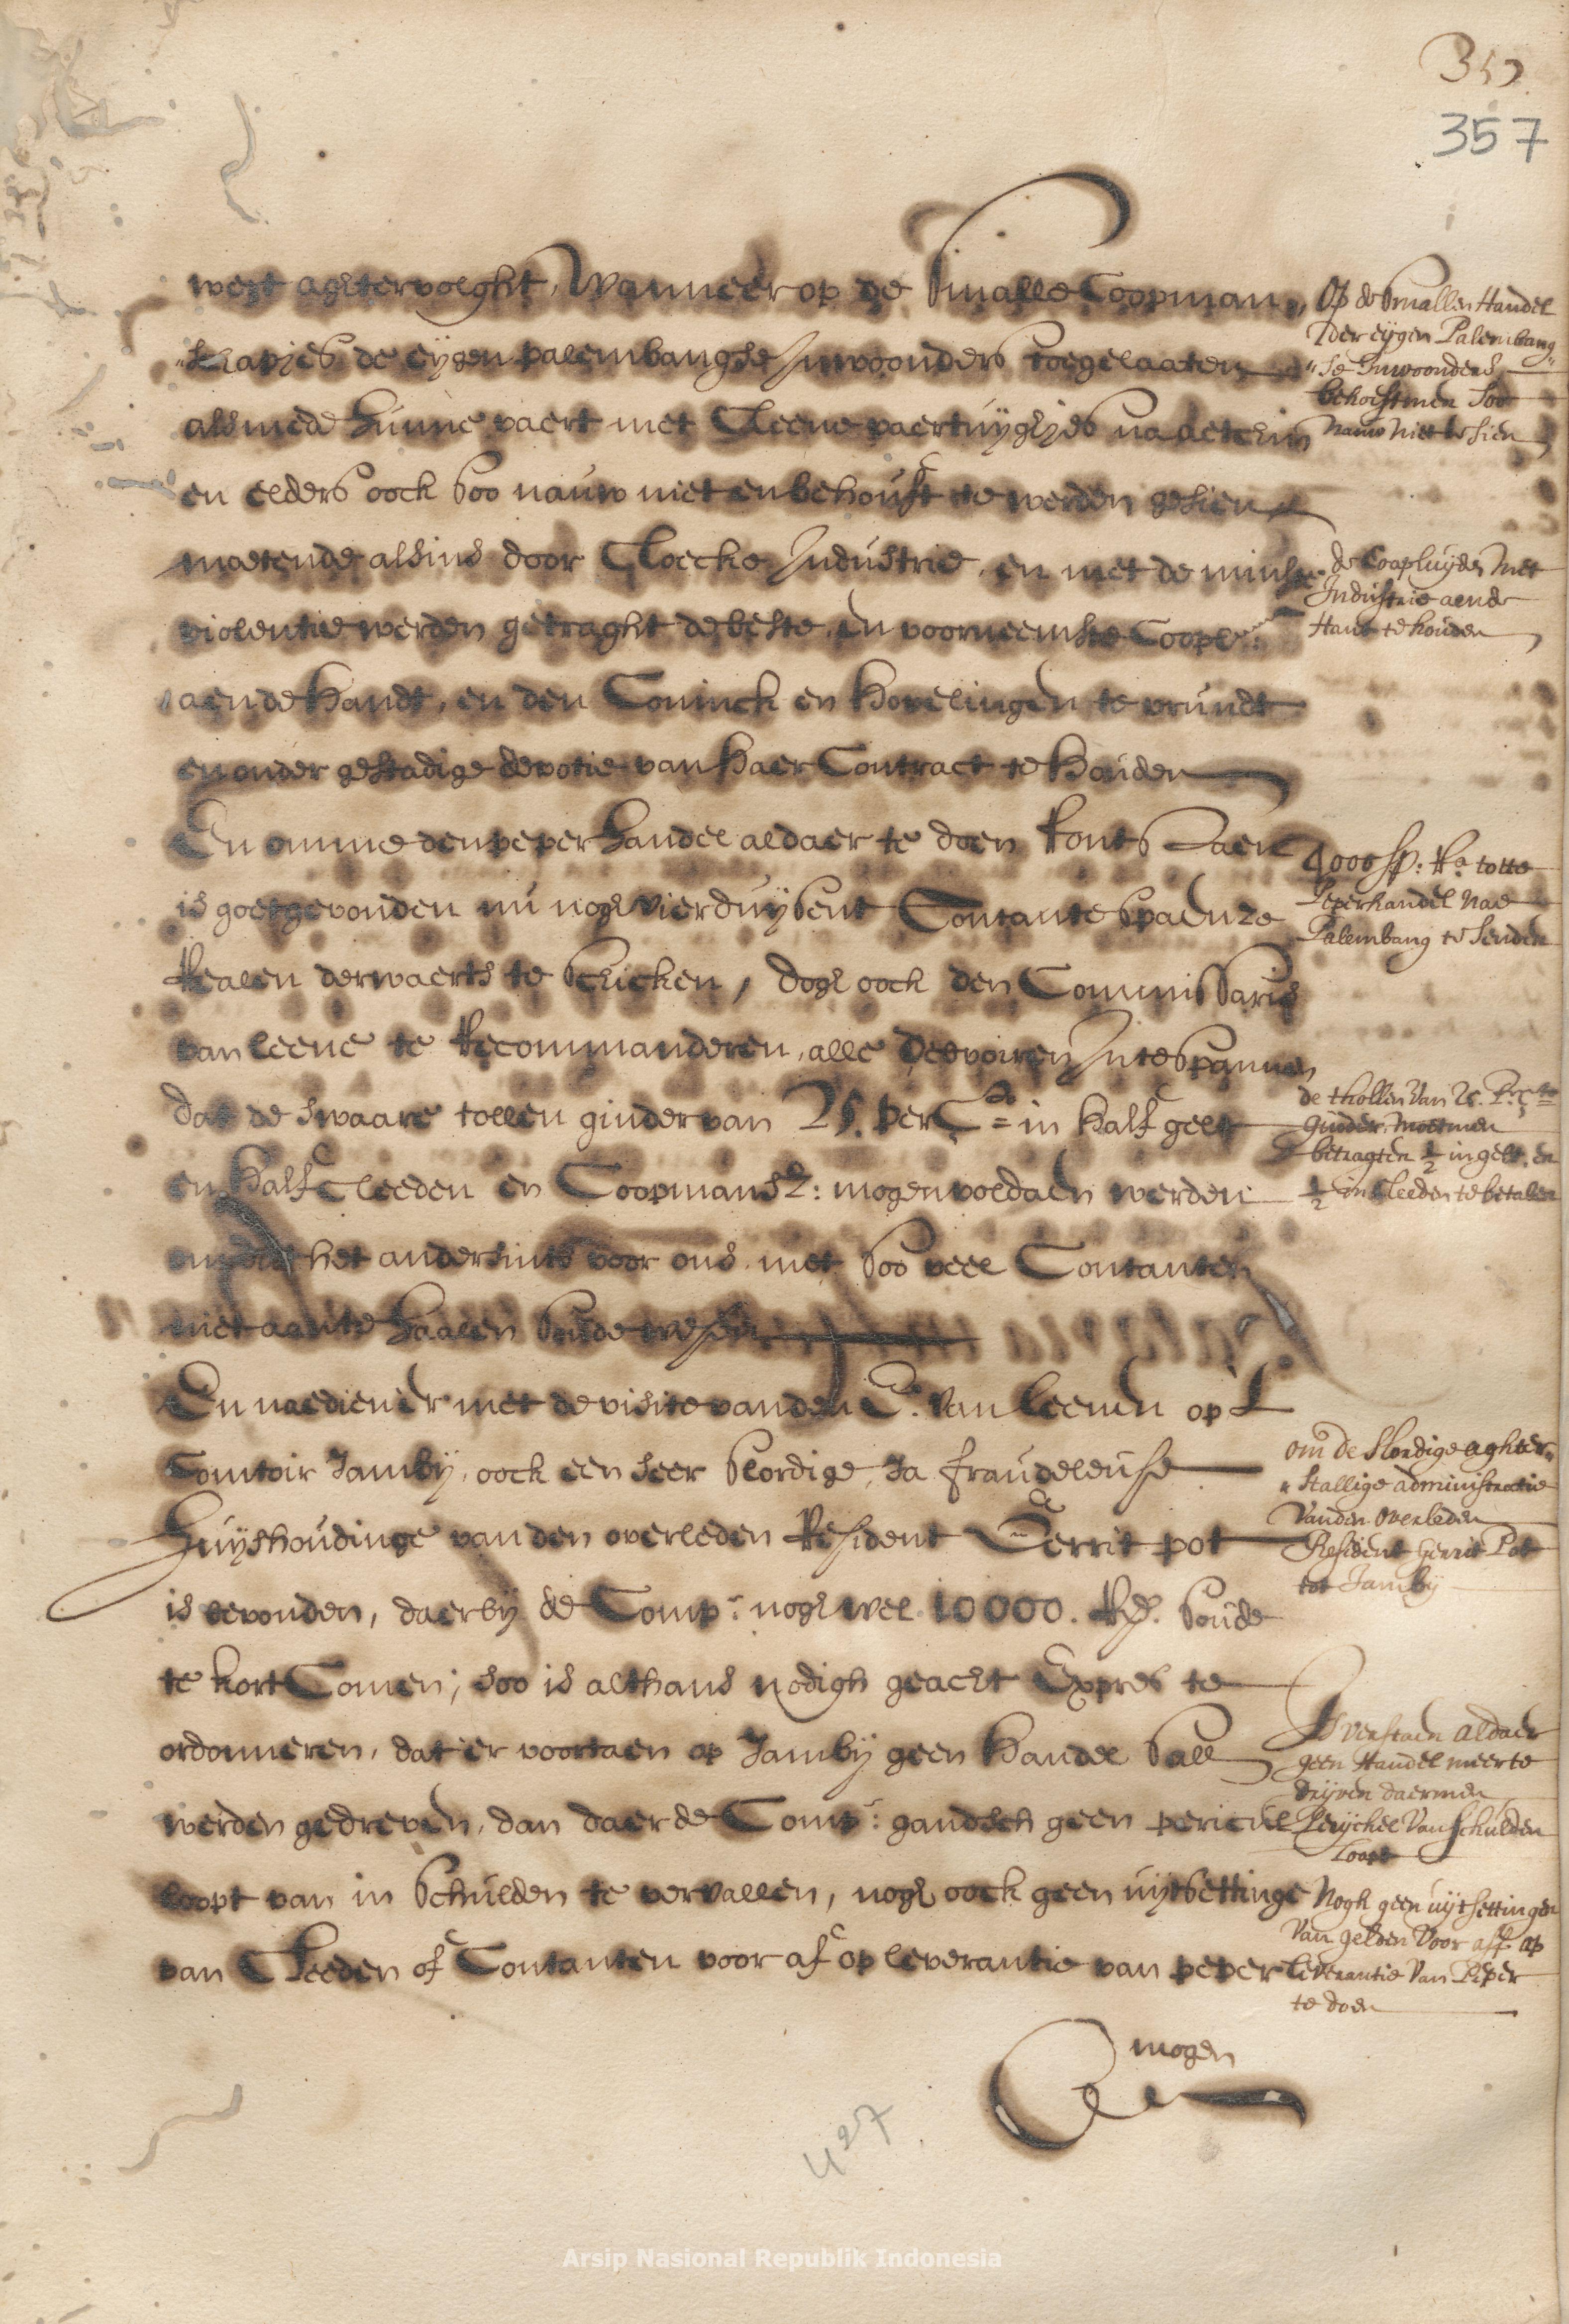 357
wert aghtervolght, Wanneer op de Smalle Coopman„
„schapjes de eijgen palembanghse Inwoonders toegelaaten
als mede hunne vaert met Cleene vaertuijghjes na
en elders oock Soo nauw niet en behouft te werden gesien
moetende alsins door Cloecke Industrie, en met de minste
violentie werden getraght de beste, en voorneemste Coopl:
aen de handt, en den Coninck en hovelingen te vrundt
en onder gestadige devotie van haer Contract te houden
En omme den peper handel aldaer te doen
is goetgevonden nu nogh vierduijsent Contante Spaense
Realen derwaerts te Schicken, dogh oock den Commissaris
van leene te Recommanderen, alle devoiren Inte Spannen
dat de swaare tollen ginder van 25. per C:to in half gelt
en half Cleeden en Coopmansz: mogen voldaen werden
het andersints voor ons met Soo veel Contanten
niet aen te haalen Soude wesen
En naedien er met de visite vanden E: van leenen op 't
Comtoir Jambij, oock een seer Slordige, Ja fraudeleuse
huijshoudinge van den overleden Resident Gerrit pot
is bevonden, daerbij de Comp: nogh wel 10000. Rs. Soude
te kort Comen; soo is althans nodigh geacht Expres te
ordonneren, dat'er voortaen op Jambij geen handel Sall
werden gedreven, dan daer de Comp: gandsch geen pericul
loopt van in Schulden te vervallen, nogh oock geen uijtsettinge
van Cleeden of Contanten voor af op leverantie van peper
mogen
Op de Smallen Handel
der eijgen Palembang„
„se Inwoonders
behoeftmen Soo
nauw niet te Sien
de Coopluijden met
Industrie aende
Hant te houden
4000 Sp: Ra totte
Peperhandel nae
Palembang te Senden
de thollen van 25. P:r C:to
ginder moetmen
betragten ½ in gelt, en
½ in Cleeden te betalen
om de Slordige aghter„
„stallige administratie
vanden overleden
Resident Gerrit Pot
tot Jambij
Is verstaen aldaer
geen Handel meer te
drijven daermen
Perijckel van schulden
loopt
Nogh geen uijtsettingen
van gelden voor aff op
leverantie van Peper
te doen
427
Arsip Nasional Republik Indonesia